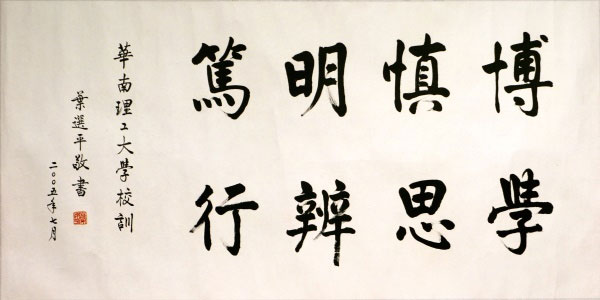 博學
慎思
明辨
篤行
華南理工大學校訓
葉選平敬書
二〇〇五年七月